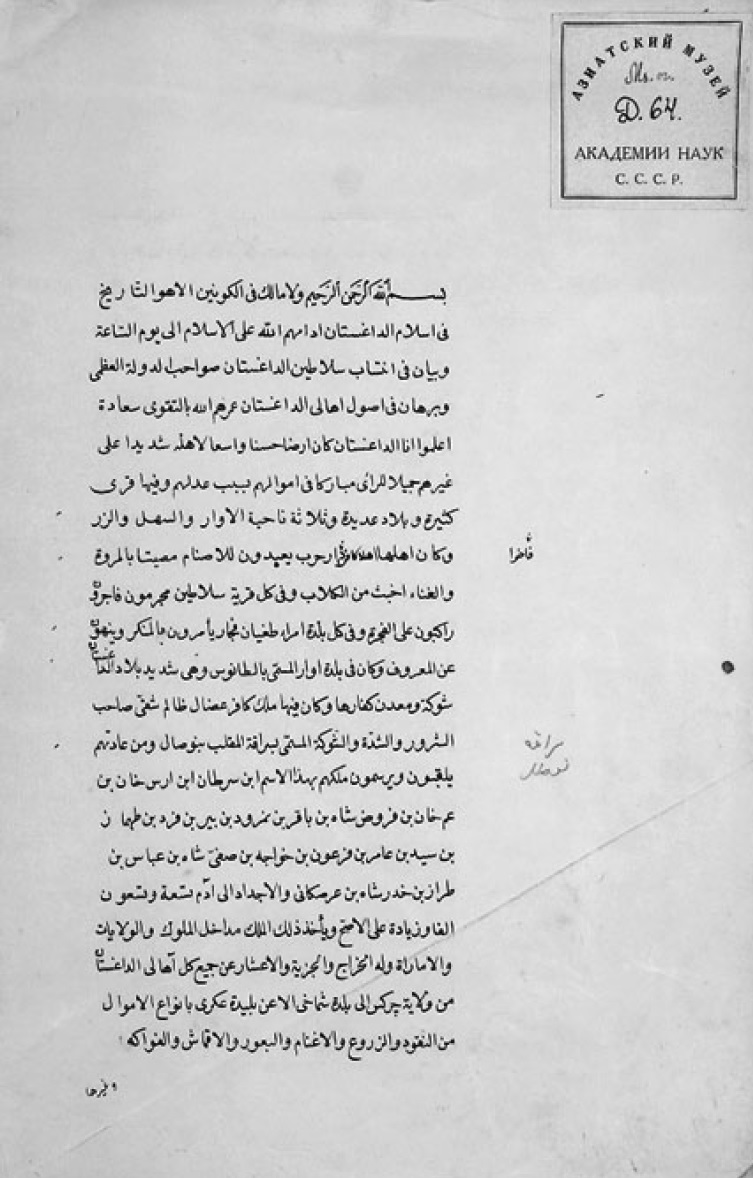 АЗИАТСКИЙ МУЗЕЙ
Д. 64.
АКАДЕМИИ НАУК
С. С. С. Р.
بسم الله الرحمن الرحيم ولا مالك فى الكونين الا هو التاريخ
فى اسلام الداغستان ادامهم الله على الاسلام الى يوم الساعة
وبيان فى انتساب سلاطين الداغستان صواحب الدولة العظمى
وبرهان فى اصول اهالى الداغستان عرهم الله بالتقوى سعادة
اعلموا انا الداغستان كان ارضا حسنا واسعا لاهله شديدا على
غيرهم جميلا للرأى مباركا فى اموالهم بسبب عدلهم وفيها قرى
كثيرة وبلاد عديدة وثلاثة ناحية الاوار والسهل والزر
وكان اهلها حرب يعبدون للاصنام بالمروة
والغناء اخبث من الكلاب وفى كل قرية سلاطين مجرمون فاجرون
راكبون على وفى كل بلدة امراء طغيان فجار يأمرون بالمنكر وينهون
عن المعروف وكان فى بلدة اوار المسمى بالطانوس وهى شديد بلاد الداغستان
شوكة ومعدن كفارها وكان فيها ملك كافر عضال ظالم شقى صاحب
الشرور والشدة والشوكة المسمى بسراقة الملقب بنوصال ومن عادتهم
يلقبون ويرسمون ملكهم بهذا الاسم ابن سرطان ابن ارس خان بن
عم خان بن فروض شاه بن باقر بن نمرود بن بير بن فرد بن طهمان
بن سيد بن عامر بن فرعون بن خواجه بن صفى شاه بن عباس بن
طراز بن خدر شاه بن عرصكانى والاجداد الى ادم تسعة وتسعون
الفا وزيادة على الاصح ويأخذ ذلك الملك مداخل الملوك والولايات
والاماراة وله الخراج والجزية والاعشار عن جميع كل آهالى الداغستان
من ولاية چركس الى بلدة شماخى الاعن بليدة عكرى بانواع الاموال
من النقود والزروع والاغنام والبعور والاقماش والفواكه
وغيرها
سراقه